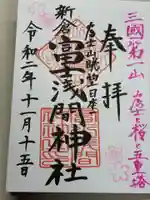 三國第一山 富士と桜と五重塔
奉拝
富士山眺望日本一
新倉 富士浅間神社
令和二年十一月十五日